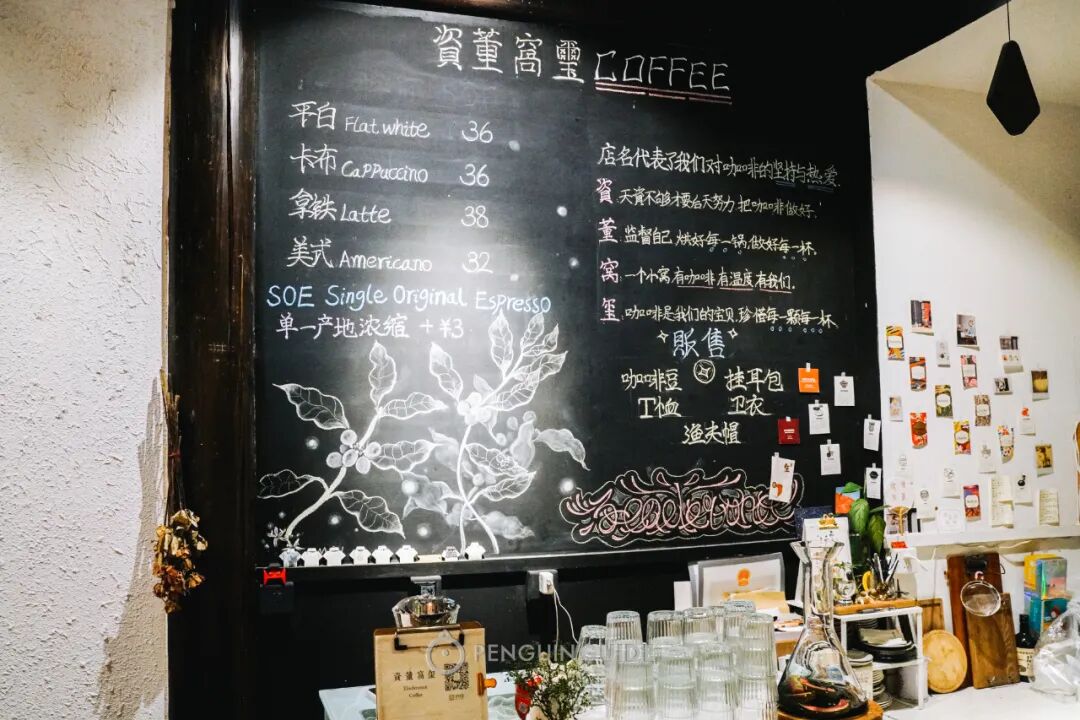 資董窩璽 COFFEE
平白 Flat white 36
卡布 Cappuccino 36
拿铁 Latte 38
美式 Americano 32
SOE Single Original Espresso
单一产地浓缩 +¥3
店名代表了我们对咖啡的坚持与热爱.
資:天資不够才要后天努力 把咖啡做好.
董:监督自己 烘好每一锅,做好每一杯.
窝:一个小窝有咖啡有温度有我们.
玺:咖啡是我们的宝贝,珍惜每一颗每一杯.
贩售
咖啡豆 挂耳包
T恤 卫衣
渔夫帽
資董窩璽
Coffee
PENGUIN GUIDE